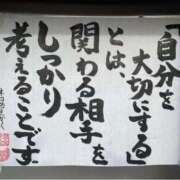 「自分を
大切にする」
とは、
関わる相手を
しっかり
考えることです